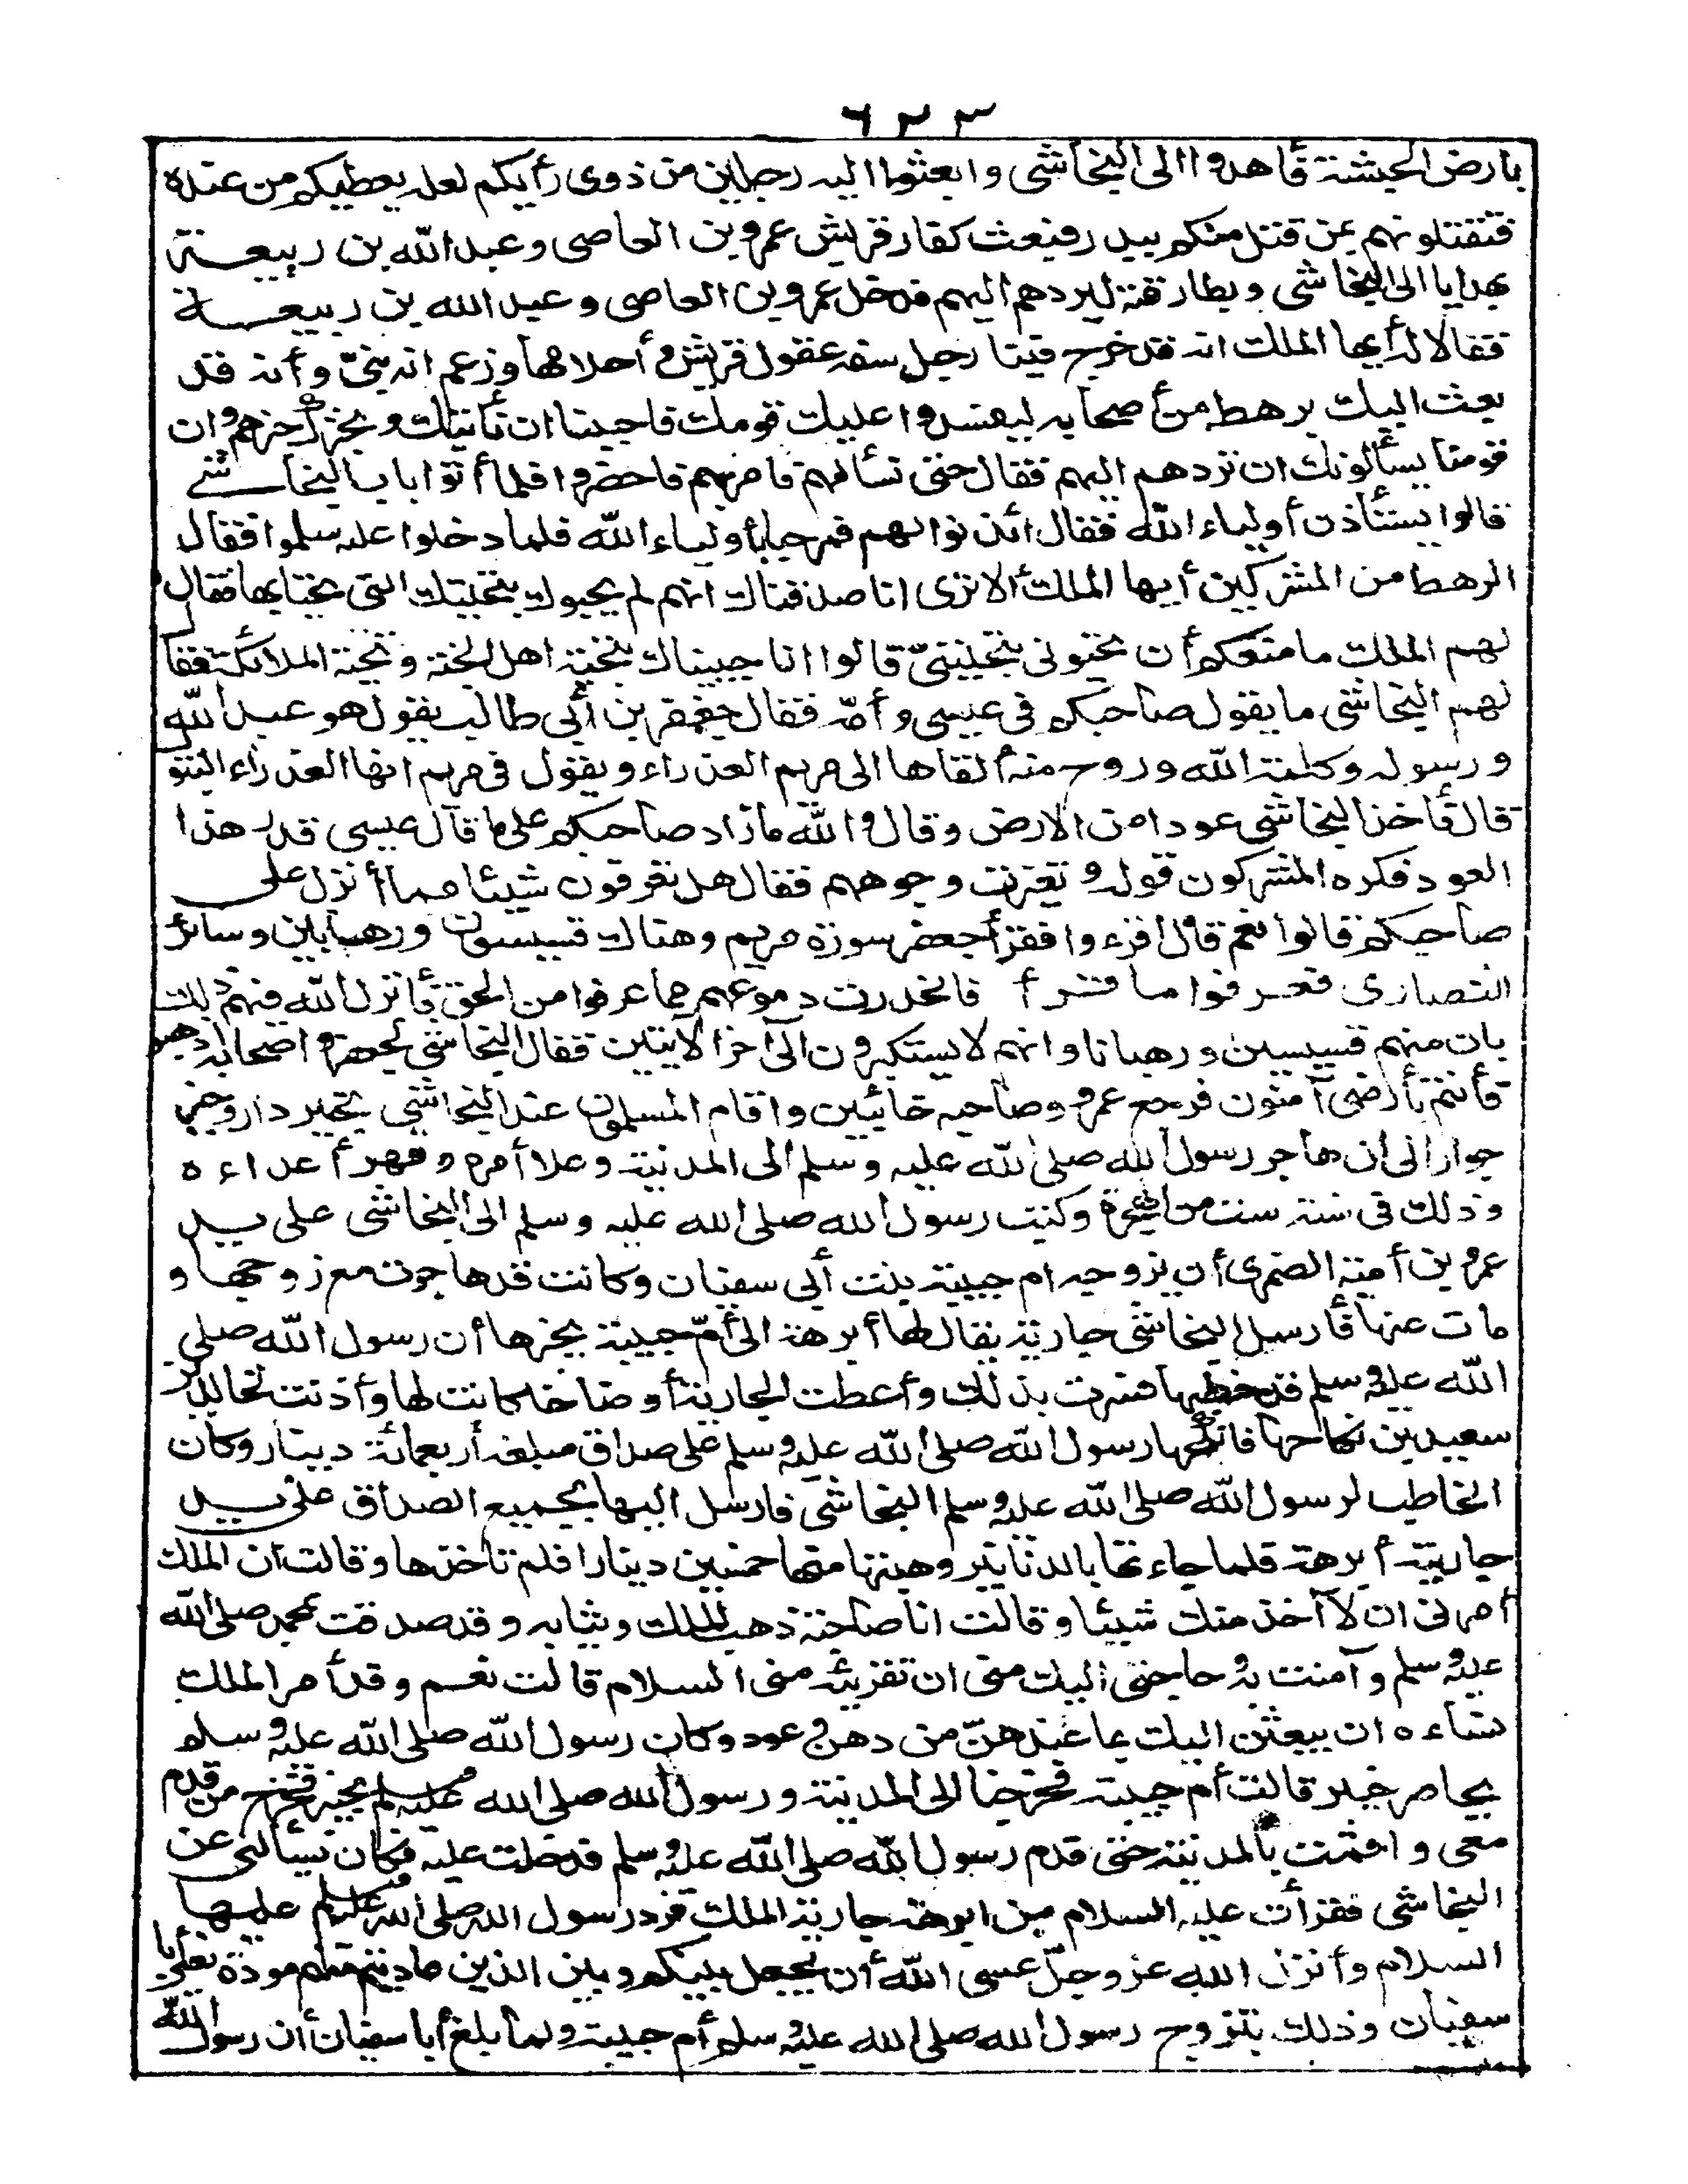 ٦٢٣
بارض الحبشة فأهدوا الى النجاشى وابعثوا اليه رجلين من ذوى رأيكم لعله يعطيكم من عنده
فتقتلونهم بمن قتل منكم ببدر فبعث كفار قريش عمرو بن العاصى وعبد الله بن ربيعة
بهدايا الى النجاشى وبطارقته ليردهم اليهم فدخل عمرو بن العاصى وعبد الله بن ربيعة
فقالا له أيها الملك انه قد خرج فينا رجل سفه عقول قريش وأحلامها وزعم انه نبىّ وأنه قد
بعث اليك برهط من أصحابه ليفسدوا عليك قومك فاحببنا ان نأتيك ونخبرك خبرهم وان
قومنا يسألونك ان تردهم اليهم فقال حتى نسألهم فأمر بهم فاحضروا فلما أتوا باب النجاشى
قالوا يستأذن أولياء الله فقال ائذنوا لهم فمرحبا بأولياء الله فلما دخلوا عليه سلموا فقال
الرهط من المشركين أيها الملك ألا ترى انا صدقناك انهم لم يحيوك بتحيتك التى تحيا بها فقال
لهم الملك ما منعكم أن تحيونى بتحيتىّ قالوا انا حييناك بتحية اهل الجنة وتحية الملائكة فقال
لهم النجاشى ما يقول صاحبكم فى عيسى وأمه فقال جعفر بن أبى طالب يقول هو عبد الله
ورسوله وكلمة الله وروح منه ألقاها الى مريم العذراء ويقول فى مريم انها العذراء البتول
قال فأخذ النجاشى عودا من الارض وقال والله ما زاد صاحبكم على ما قال عيسى قدر هذا
العود فكره المشركون قوله وتغيرت وجوههم فقال هل تعرفون شيئا مما أنزل على
صاحبكم قالوا نعم قال اقرءوا فقرأ جعفر سورة مريم وهناك قسيسون ورهبابين وسائر
النصارى فعرفوا ما قرأ فانحدرت دموعهم مما عرفوا من الحق فأنزل الله فيهم ذلك
بان منهم قسيسين ورهبانا وانهم لا يستكبرون الى آخر الآيتين فقال النجاشى لجعفر وأصحابه اذهبوا
فأنتم بأرضى آمنون فرجع عمرو وصاحبه خائبين وأقام المسلمون عند النجاشى بخير دار وخير
جوار الى ان هاجر رسول الله صلى الله عليه وسلم الى المدينة وعلا أمره وقهر أعداءه
وذلك فى سنة ست من الهجرة وكتب رسول الله صلى الله عليه وسلم الى النجاشى على يد
عمرو بن أمية الضمرى أن يزوجه ام حبيبة بنت أبى سفيان وكانت قد هاجرت مع زوجها و
مات عنها فأرسل النجاشى جارية يقال لها أبرهة الى أمّ حبيبة يخبرها أن رسول الله صلى
الله عليه وسلم قد خطبها فسرت بذلك وأعطت الجارية أوضاحا كانت لها وأذنت لخالد بن
سعيد بن نكاحها فانكحها رسول الله صلى الله عليه وسلم على صداق مبلغه أربعمائة دينار وكان
الخاطب لرسول الله صلى الله عليه وسلم النجاشى فارسل اليها بجميع الصداق على يد
جاريته أبرهة فلما جاءتها بالدنانير وهبتها منها خمسين دينارا فلم تأخذها وقالت ان الملك
أمرنى ان لا آخذ منك شيئا وقالت انا صاحبة دهن الملك وثيابه وقد صدقت بمحمد صلى الله
عليه وسلم وآمنت به وحاجتى اليك منى ان تقرئيه منى السلام قالت نعم وقد أمر الملك
نساءه ان يبعثن اليك بما عندهنّ من دهن وعود وكان رسول الله صلى الله عليه وسلم
يحاصر خيبر قالت أم حبيبة فخرجنا الى المدينة ورسول الله صلى الله عليه وسلم بخيبر فخرج من قدم
معى واقمت بالمدينة حتى قدم رسول الله صلى الله عليه وسلم فدخلت عليه فكان يسألنى عن
النجاشى فقرأت عليه السلام من ابرهة جارية الملك فرد رسول الله صلى الله عليه وسلم عليها
السلام وأنزل الله عز وجلّ عسى الله أن يجعل بينكم وبين الذين عاديتم منهم مودة يعنى أبا
سفيان وذلك بتزوج رسول الله صلى الله عليه وسلم أم حبيبة ولما بلغ أبا سفيان أن رسول الله